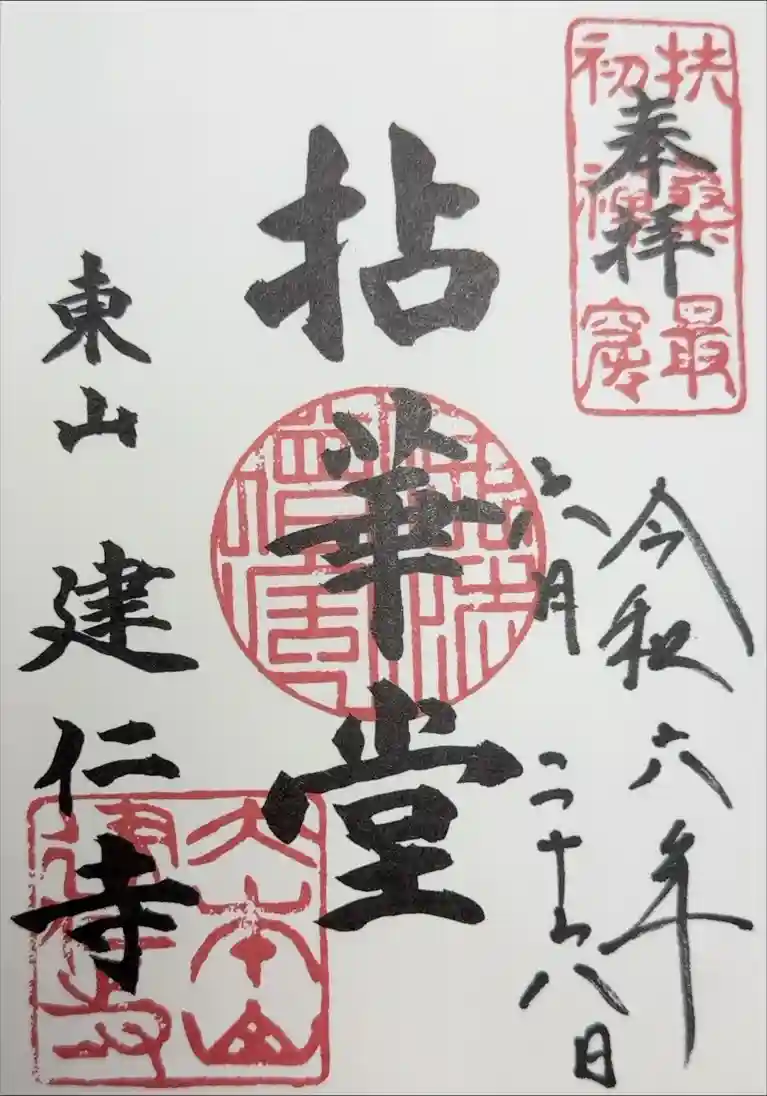 奉拝
扶桑最
初禅窟
令和六年
六月二十八日
拈華堂
東山 建仁寺
大本山
建仁寺